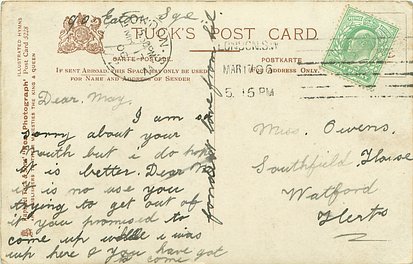 90 Eaton Sqe
TUCK'S POST CARD
CARTE-POSTALE.
POSTKARTE
IF SENT ABROAD, THIS SPACE MAY ONLY BE USED
FOR NAME AND ADDRESS OF SENDER
LONDON. S.W
MAR 17 06
5.15 PM
Dear May.
I am so
sorry about your
mouth but i do hope
it is better. Dear M
it is no use you
trying to get out of
it you promised to
come up while i was
up here & you have got
to come
fondest love from
Miss Owens.
Southfield House
Watford
Herts